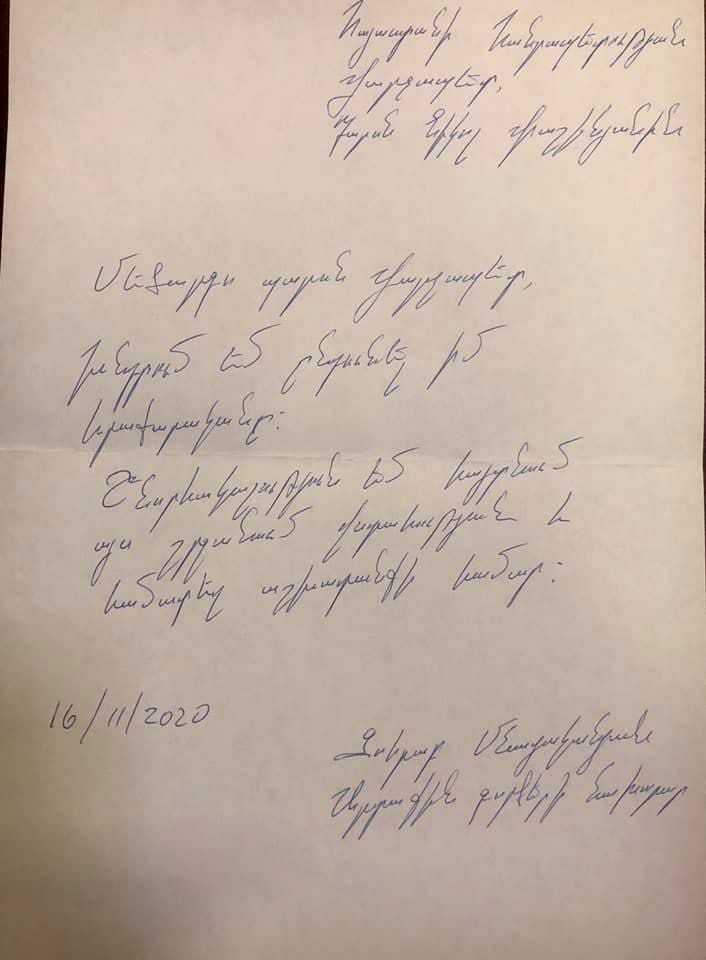 Հայաստանի Հանրապետության
վարչապետ,
Պարոն Նիկոլ Փաշինյանին
Մեծարգո պարոն վարչապետ,
Խնդրում եմ ընդունել իմ
հրաժարականը:
Շնորհակալություն եմ հայտնում
այս շրջանում վստահության և
համատեղ աշխատանքի համար:
16/11/2020
Զոհրաբ Մնացականյան
Արտաքին գործերի նախարար